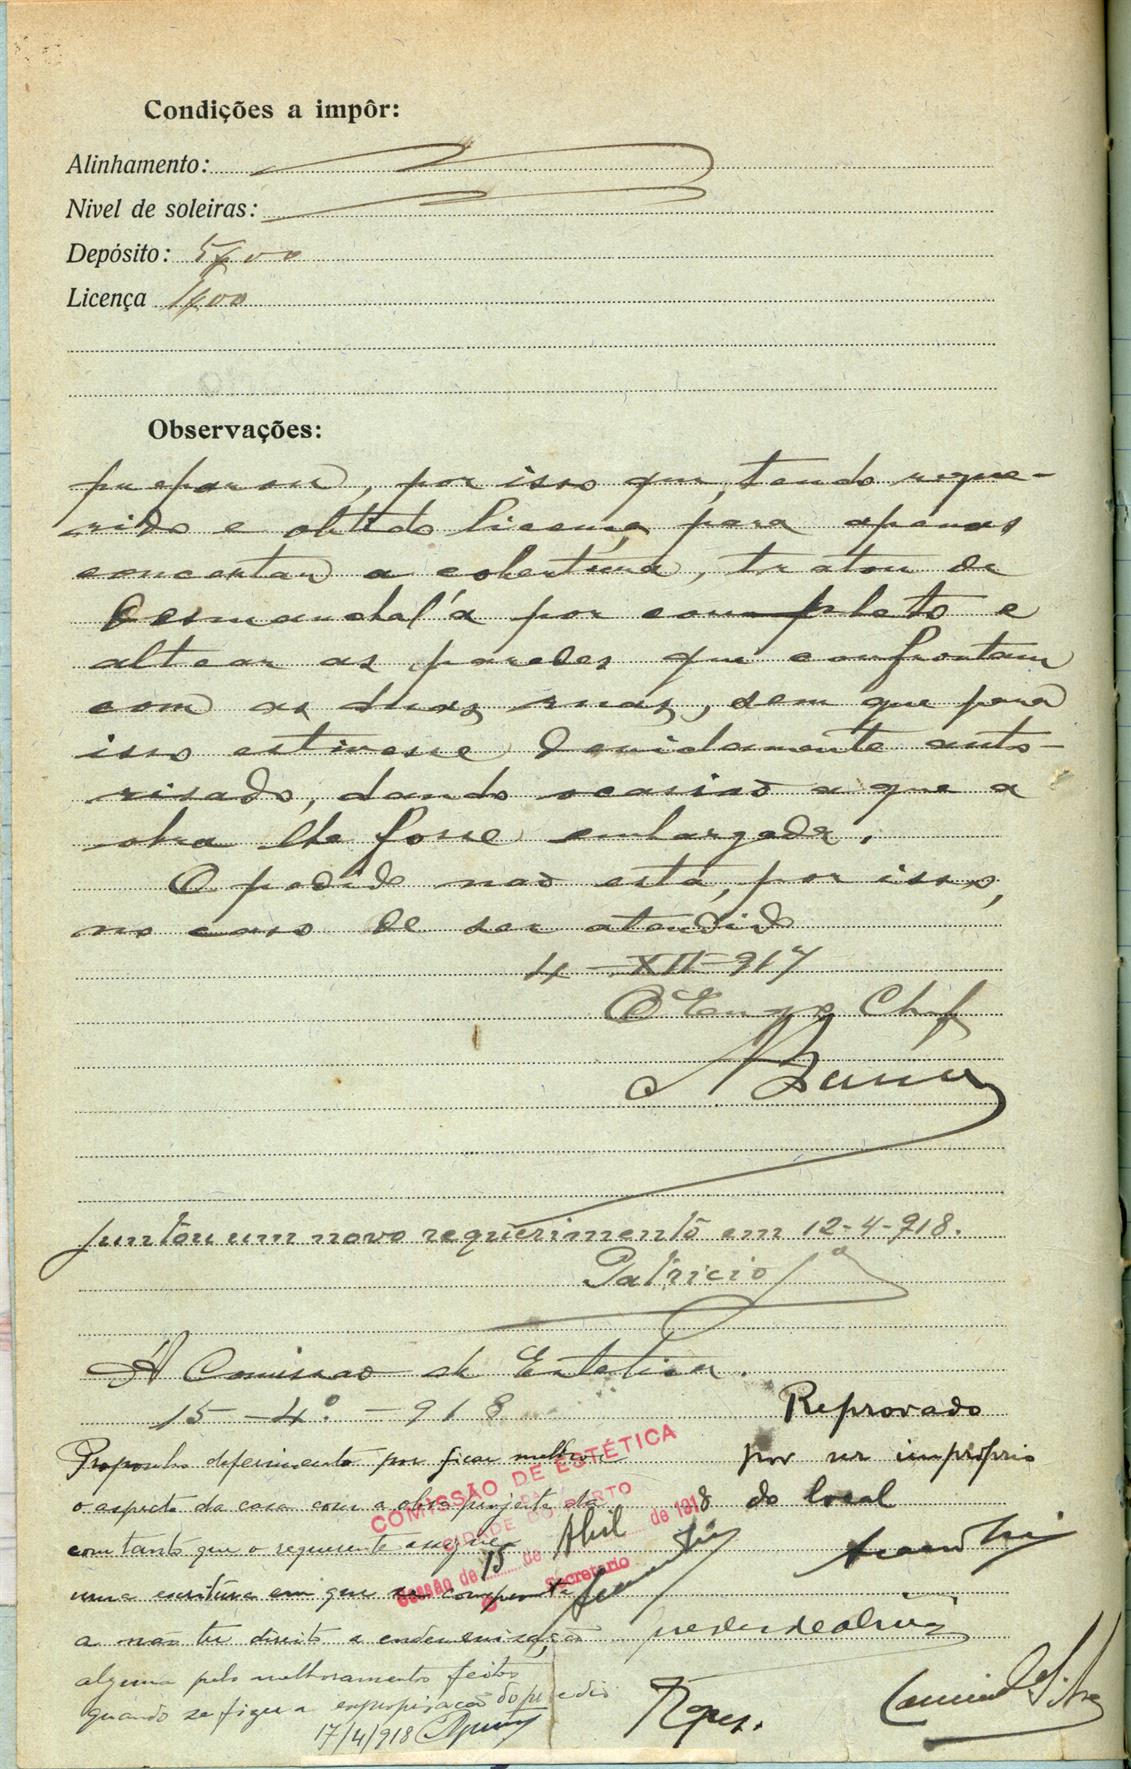 Condições a impôr:
Alinhamento:
Nivel de soleiras:
Depósito: 5$00
Licença 1$00
Observações:
preparou, por isso que, tendo reque-
rido e obtido licença para apenas
concertar a cobertura, tratou de
desmanchal'a por completo e
altear as paredes que confrontam
com as duas ruas, sem que para
isso estivesse devidamente auto-
risado, dando ocasião a que a
obra lhe fosse embargada.
O pedido não está, por isso,
no caso de ser atendido
4-XII-917
O Engo Chefe
Juntou um novo requerimento em 12-4-918.
Patricio
Á Comissão de Estetica.
15-4º-918
Reprovado
por ser impróprio
do local
Proponho deferimento por ficar melhor
o aspecto da casa com a obra projectada
com tanto que o requerente
uma escritura em que se comprometa
a não ter direito a endemenisação
alguma pelo melhoramento feito
quando se fizer a expropriação do predio
17/4/918
COMISSÃO DE ESTÉTICA
DA
CIDADE DO PORTO
Sessão de 15 de Abril de 1918
O Secretario
Lopes.